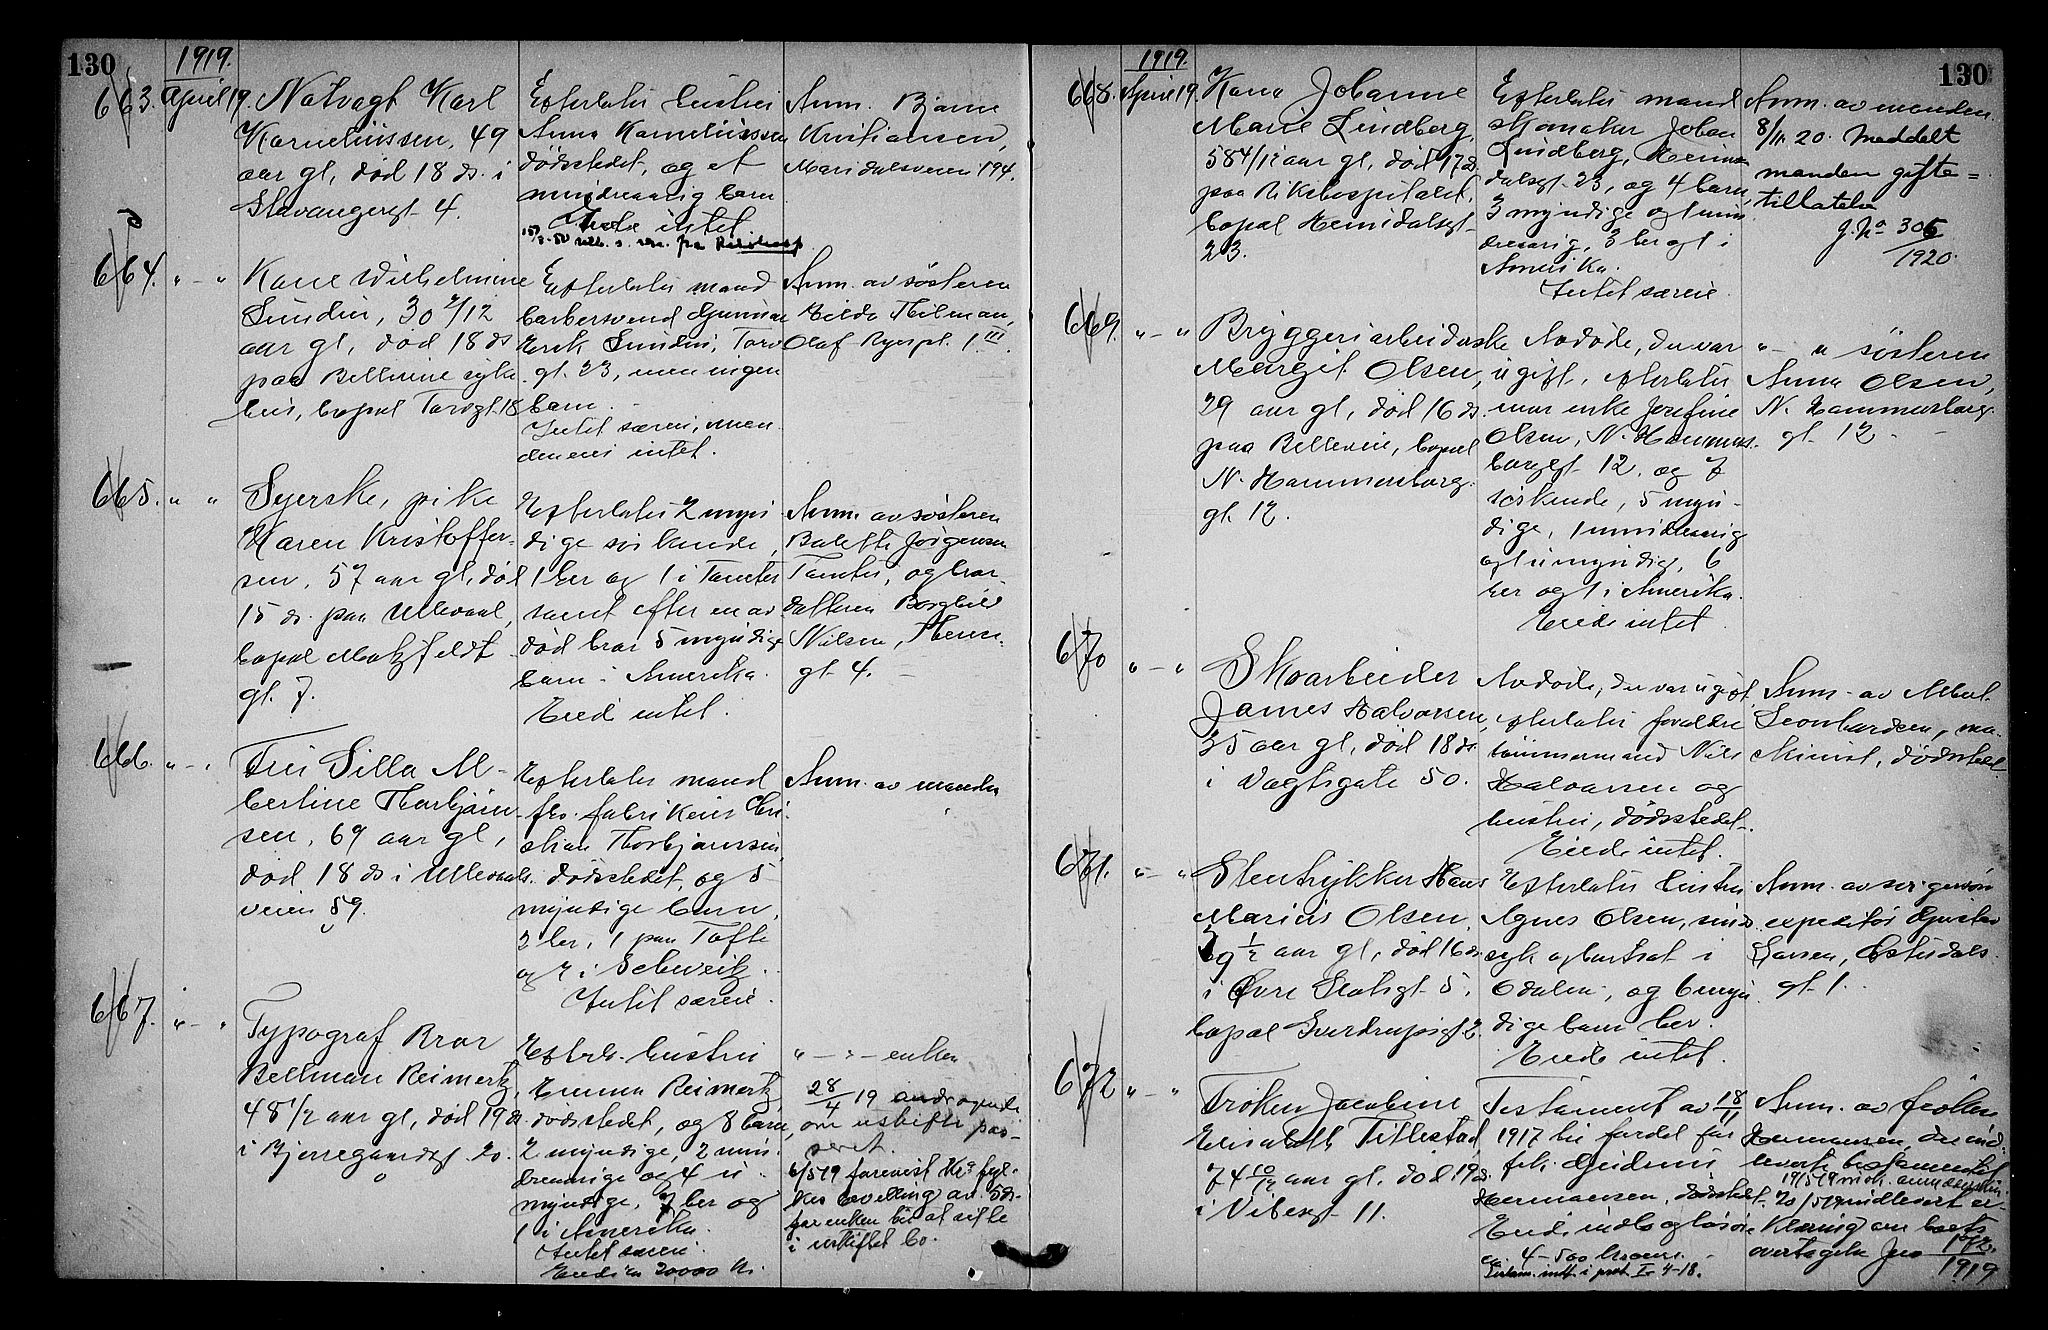 130
1919.
663. April 19.
Natvagt Karl
Korneliussen, 49
aar gl, død 18 ds. i
Stavangergt 4.
Efterlater hustru
Anna Korneliussen
dødsstedet, og et
mindreaarig barn
Eiede intet
Anm. Bjarne
Kristiansen,
Maridalsveien 194.
664. " - "
Kone Wilhelmine
Sundin, 30 2/12
aar gl, død 18 ds
paa Bellevue syke
hus, bopæl Torvgt. 18
Efterlater mand
barbersvend Gunnar
Sundin, Torv
gt. 23, men ingen
barn.
Intet særeie, men
den eies intet.
Anm. av søsteren
Hilda Thilman,
Olaf Ryespl. 1 III.
665. " "
Syerske, pike
Karen Kristoffer-
sen, 57 aar gl, død
15 ds. paa Ullevaal,
bopæl Motzfeldt
gt. 7.
Efterlater 2 myn
dige søskende,
1 her og 1 i Tomter
samt efter en av
død bror 5 myndige
barn i Amerika.
Eied intet.
Anm. av søsteren
Jørgensen
Tomter, og bror-
datteren Borghild
Nilsen,
gt. 4.
666. " - "
Fru Silla Al-
bertine Thorbjørn
sen, 69 aar gl,
død 18 ds i Ullevaals
veien 59.
Efterlater mand
fhv. fabrikeier Chri
stian Thorbjørnsen
dødsstedet, og 5
myndige barn,
2 her, 1 paa Tofte
og 2 i Schweitz.
Intet særeie.
Anm. av manden
667. " - "
Typograf Bror
Bellman Reimertz,
48 1/2 aar gl, død 19 ds.
i Bjerregaardsgt. 20.
Efterl. hustru
Emma Reimertz,
dødsstedet, og 8 barn,
2 myndige, 2 min
dreaarige og 4 u
myndige, 7 her og
1 i Amerika.
Intet særeie.
Eied ca 20000 kr.
" - " - enken
28/4 19 andragende
om uskifte pas-
seret.
6/5 19 forevist Kra fyl-
kes bevilling av 5 ds.
for enken til at sitte
i uskiftet bo.
130
1919.
668. April 19.
Kone Johanne
Marie Lindberg,
58 4/12 aar gl, død 17 ds
paa Rikshospitalet,
bopæl Heimdalsgt
23.
Efterlater mand
skomaker Johan
Lindberg, Heim
dalsgt. 23, og 4 barn,
3 myndige og 1 min
dreaarig, 3 her og 1 i
Amerika.
Intet særeie.
Anm. av manden
8/11 20. Meddelt
manden gifte-
tillatelse
J. No 305
1920.
669. " - "
Bryggeriarbeiderske
Margit Olsen,
29 aar gl, død 16 ds.
paa Bellevue, bopæl
N. Hammersborg.
gt. 12.
Avdøde, der var
ugift, efterlater
mor enke Josefine
Olsen, N. Hammers.
borggt 12, og 7
søskende, 5 myn-
dige, 1 mindreaarig
og 1 umyndig, 6
her og 1 i Amerika.
Eiede intet
" - " søsteren
Anna Olsen,
N. Hammersborg.
gt. 12.
670 " - "
Skoarbeider
James Halvorsen,
35 aar gl, død 18 ds.
i Vogtsgate 50.
Avdøde, der var ugift,
efterlater forældre
tømmermand Nils
Halvorsen og
hustru, dødsstedet.
Eiede intet.
Anm. av Albert
Leonhardsen, ma-
skinist, dødsstedet
671. " - "
Stentrykker Hans
Marius Olsen,
1/2 aar gl, død 16 ds.
i Øvre Slotsgt. 5,
bopæl Sverdrupsgt. 2.
Efterlater hustru
Agnes Olsen, sinds
syk og bortsat i
Odalen, og 6 myn
dige barn her.
Eiede intet.
Anm. av svigersøn
expeditør Gustav
Larsen, Østerdals
gt. 1.
672 " - "
Frøken Jacobine
Elisabeth Tillestad
74 10/12 aar gl, død 19 ds.
i Vibesgt 11.
Testament av 18/11
1917 til fordel for
frk. Gudrun
Hermansen, dødsstedet.
Eied indbo og løsøre
ca. 4-500 kroner.
Testam. indt. i prot. I 4-18.
Anm. av frøken
Hermansen, der ind
leverte testamentet
20/5 19 indleveret er-
klæring om boets
overtagelse Jno 172.
1919